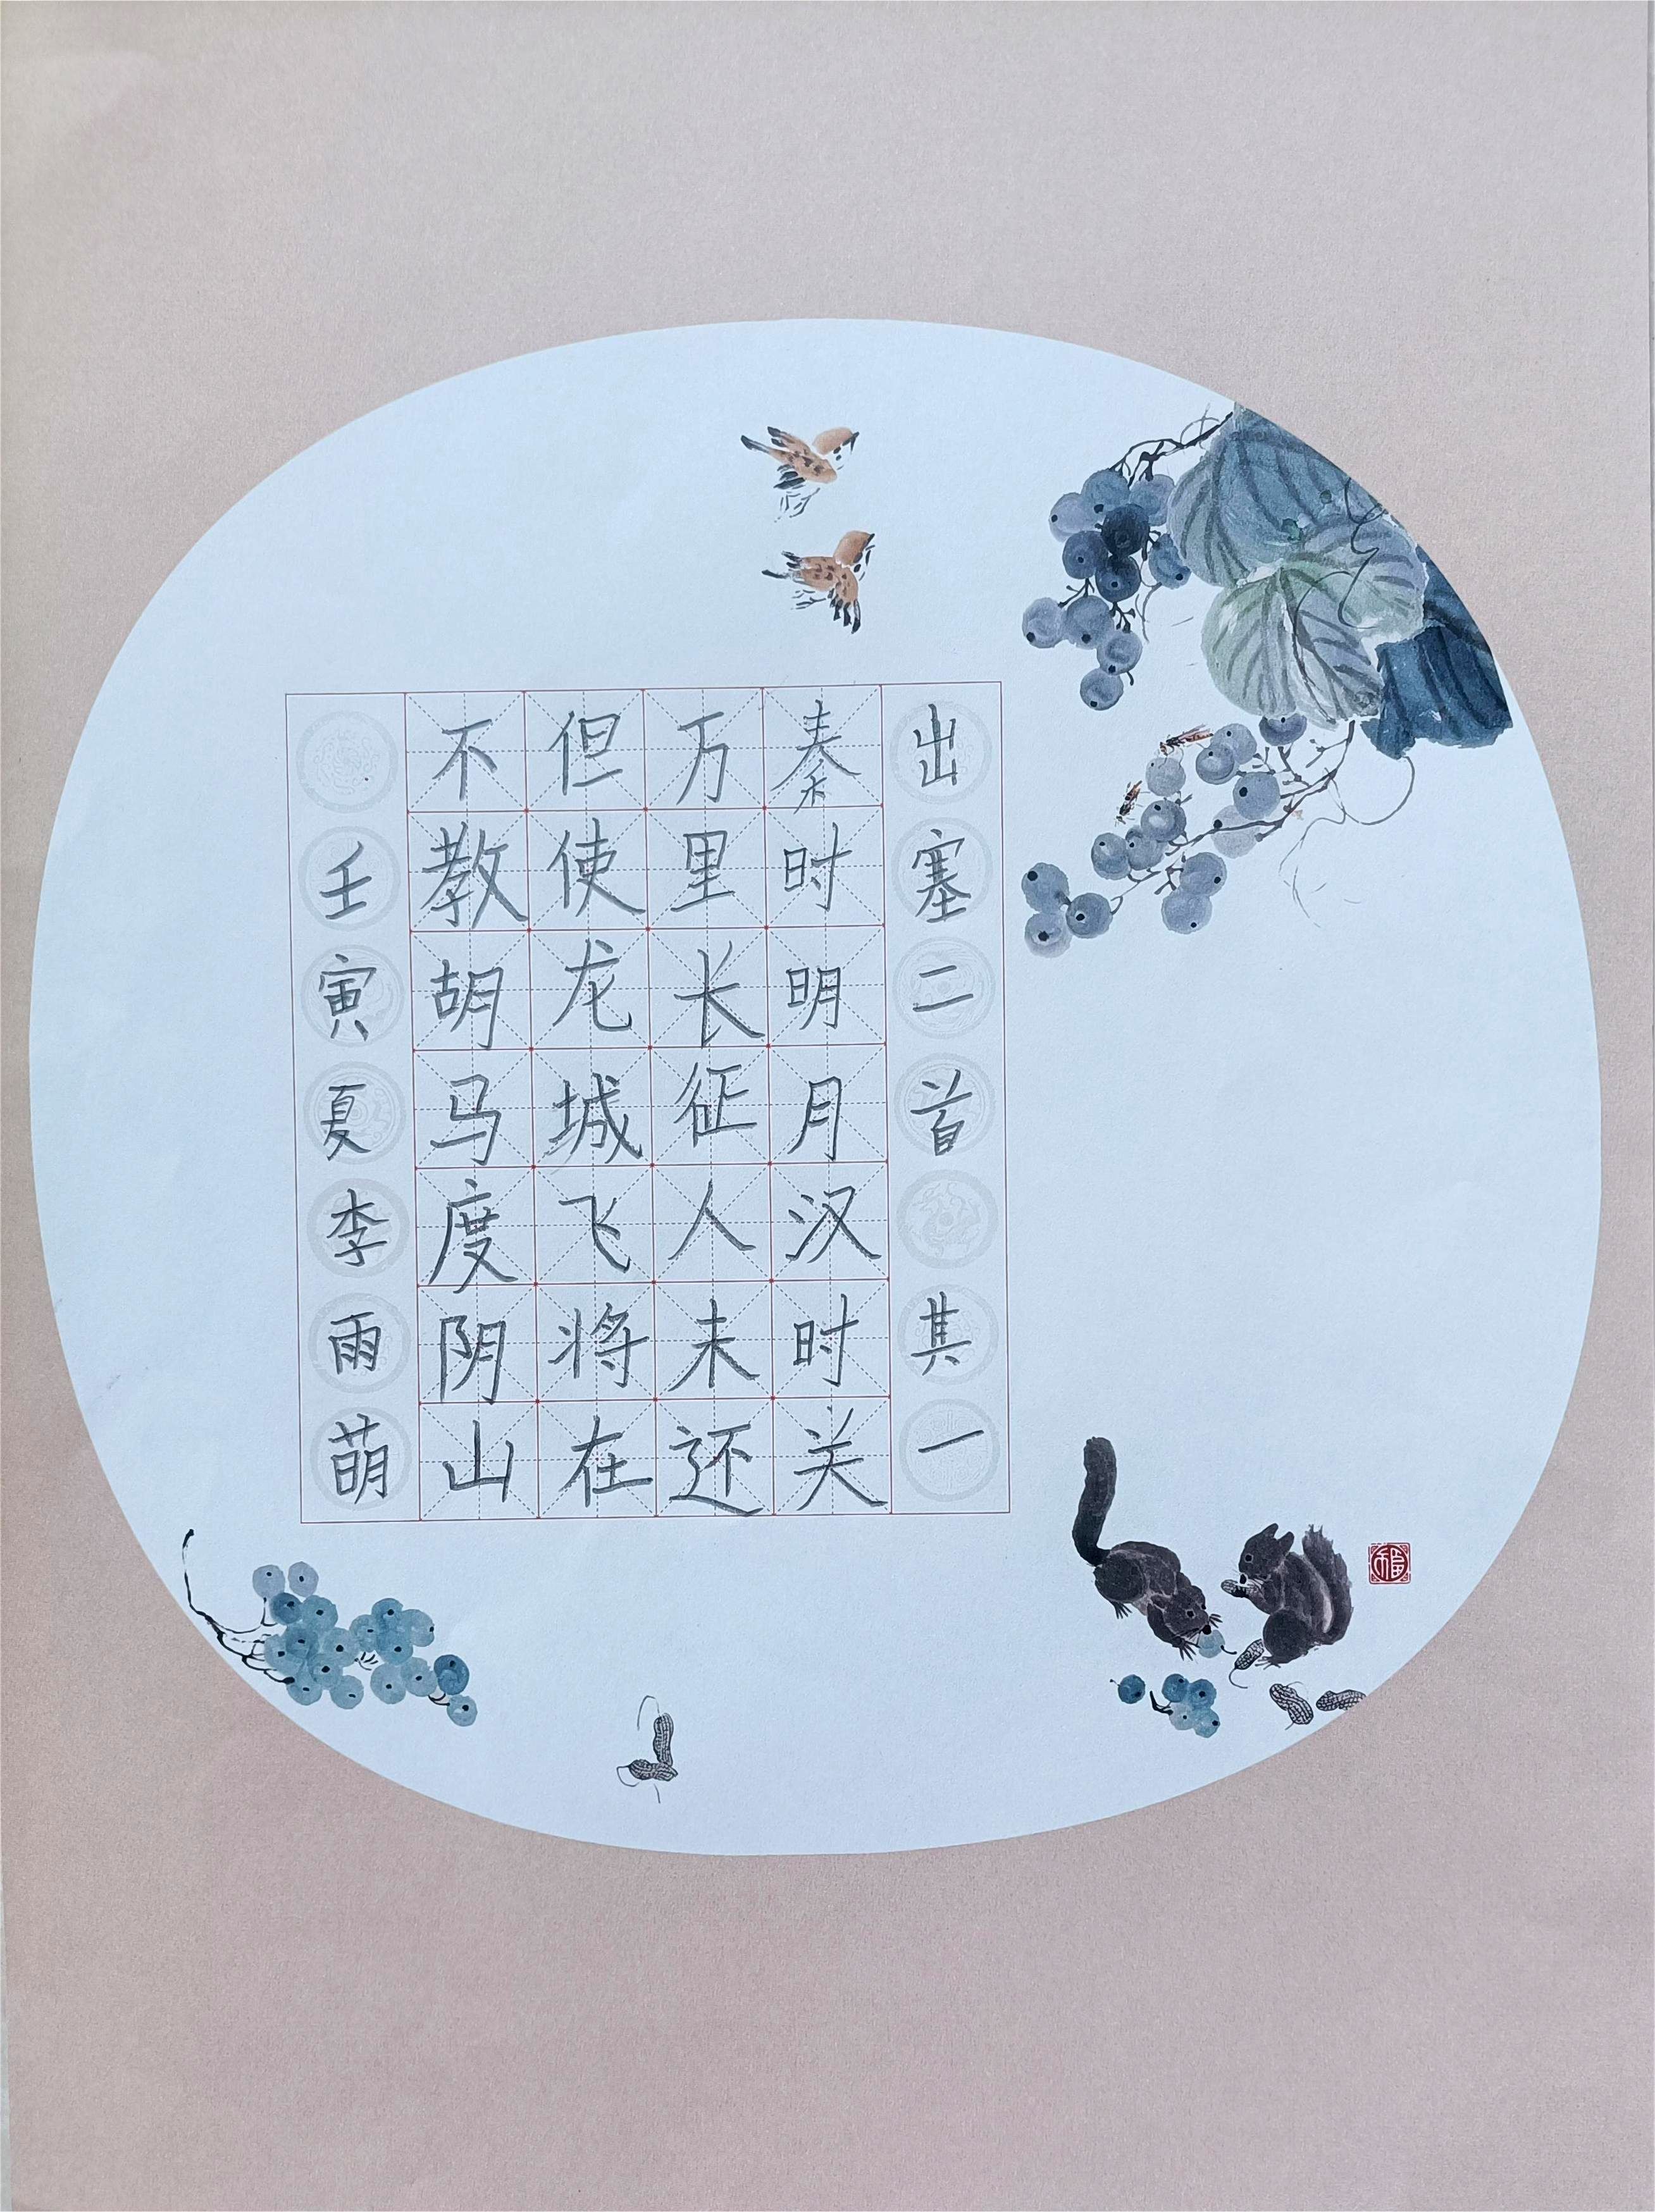 出塞二首 其一
秦时明月汉时关
万里长征人未还
但使龙城飞将在
不教胡马度阴山
壬寅夏李雨萌
福